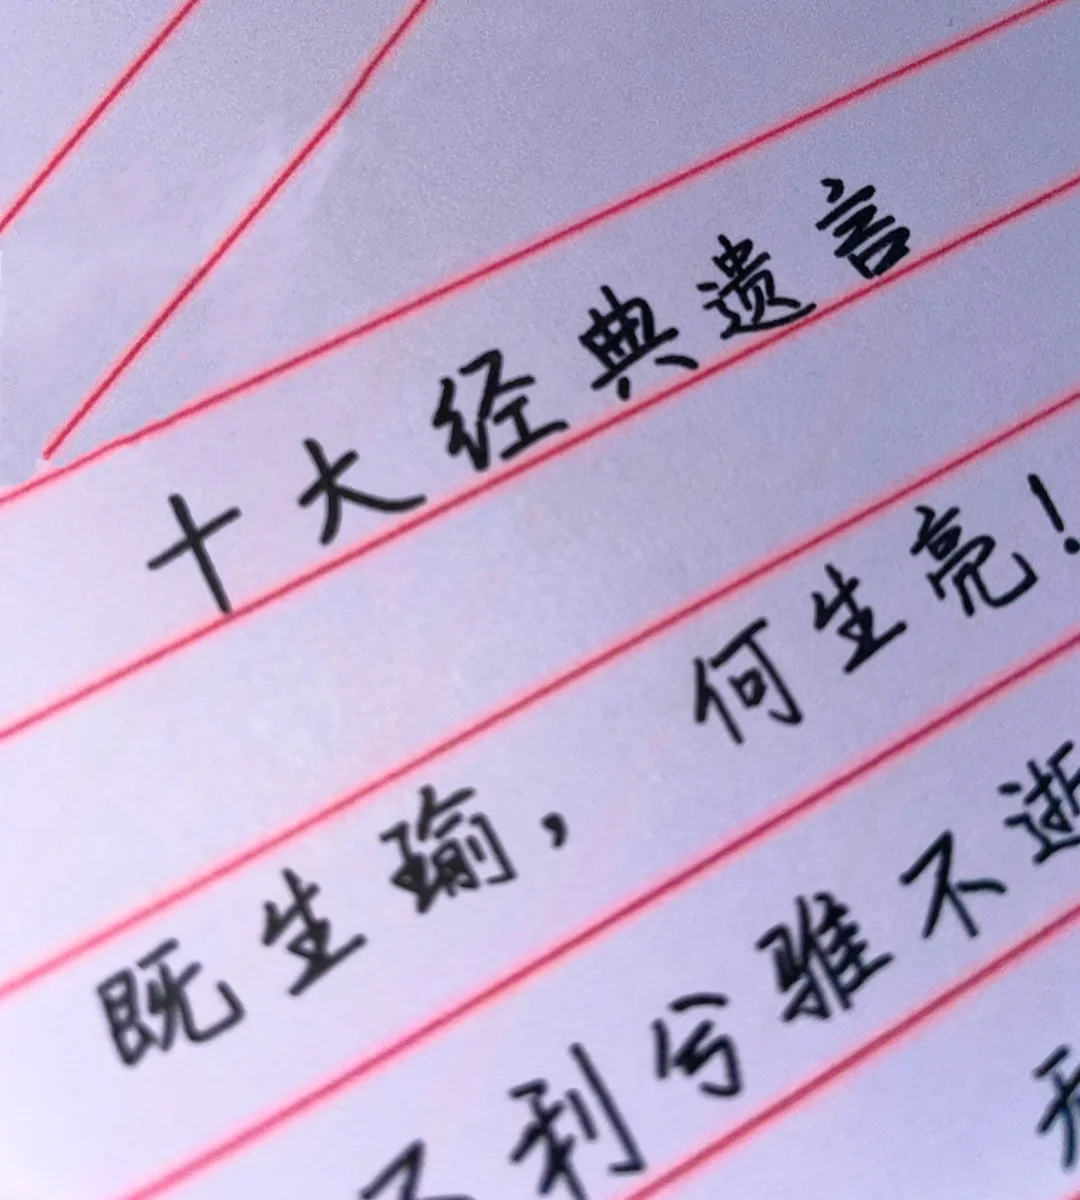 十大经典遗言
既生瑜，何生亮！
不利兮骓不逝